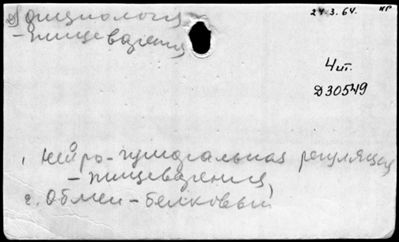 Физиология
- пищеварения
24.3.64.
4 шт.
Д30549
1. Нейро-гуморальная регуляция
- пищеварения,
2. Обмен - белковый